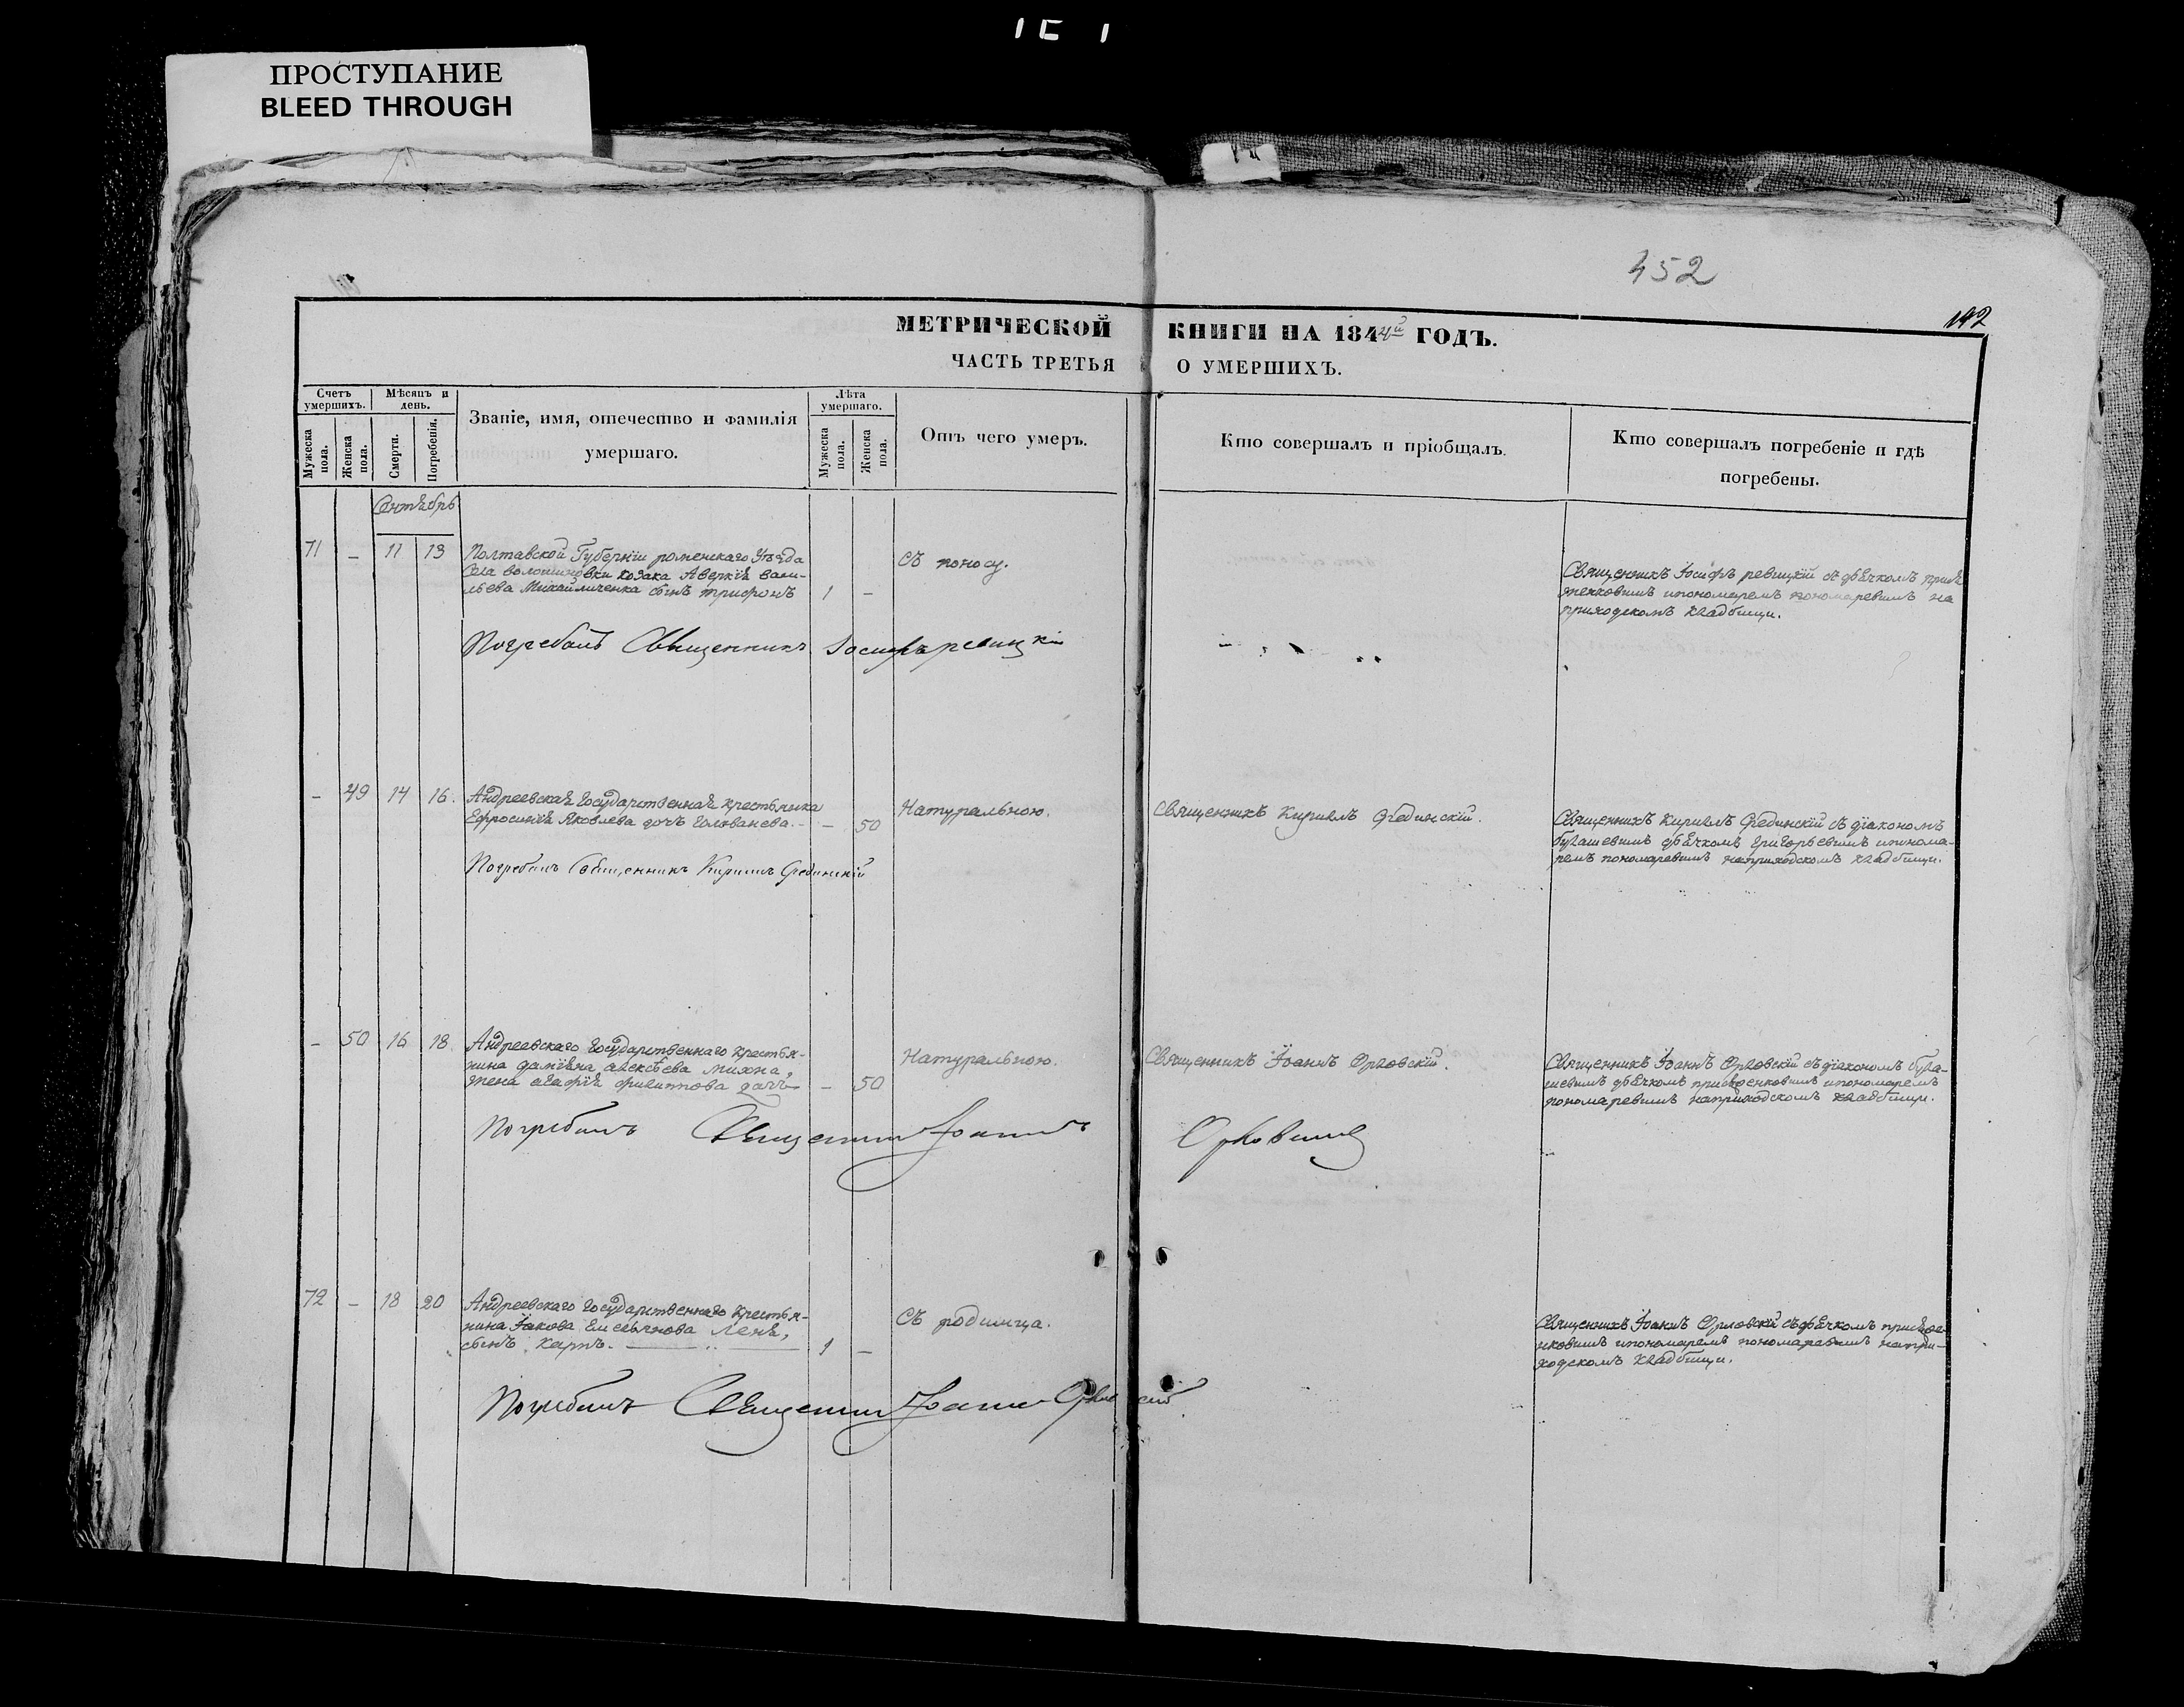 ПРОСТУПАНИЕ
BLEED THROUGH
452
192
МЕТРИЧЕСКОЙ КНИГИ НА 1844й ГОДЪ.
ЧАСТЬ ТРЕТЬЯ О УМЕРШИХЪ.
Счетъ умершихъ.
Мужеска пола.
Женска пола.
Мѣсяцъ и день.
Смерти.
Погребенія.
Званіе, имя, отечество и фамилія
умершаго.
Лѣта умершаго.
Мужеска пола.
Женска пола.
Отъ чего умеръ.
Кто совершалъ и пріобщалъ.
Кто совершалъ погребеніе и гдѣ
погребены.
Сентябрь
71 – 11 13
Полтавской Губерніи роменскаго Уѣзда
Села волошиновки козака Аверкія васи-
льева Михайличенка сынъ трифонъ
1 –
Съ поносу.
Священникъ Іосифъ ревицкій съ дьячкомъ
и пономаремъ пономаревымъ на
приходскомъ кладбищи.
Погребалъ Священникъ Іосифъ ревицкій
– 49 14 16.
Андреевская Государственная крестьянка
Ефросинія Яковлева дочь Голованева.
– 50
Натуральною.
Священникъ Кириллъ Срединскій.
Священникъ Кириллъ Срединскій съ діакономъ
булашевымъ дьячкомъ григорьевымъ и понома-
ремъ пономаревымъ на приходскомъ кладбищи.
Погребалъ Священникъ Кириллъ Срединскій
– 50 16 18.
Андреевскаго Государственнаго крестья-
нина даміяна алексѣева михна,
жена агафія филиппова дочь
– 50
Натуральною.
Священникъ Іоаннъ Орловскій.
Священникъ Іоаннъ Орловскій съ діакономъ була-
шевымъ дьячкомъ и пономаремъ
пономаревымъ на приходскомъ кладбищи.
Погребалъ Священникъ Іоаннъ Орловскій
72 – 18 20
Андреевскаго Государственнаго крестья-
нина Іакова Емельянова
сынъ Карпъ.
1 –
Съ родимца.
Священникъ Іоаннъ Орловскій съ дьячкомъ
и пономаремъ пономаревымъ на при-
ходскомъ кладбищи.
Погребалъ Священникъ Іоаннъ Орловскій